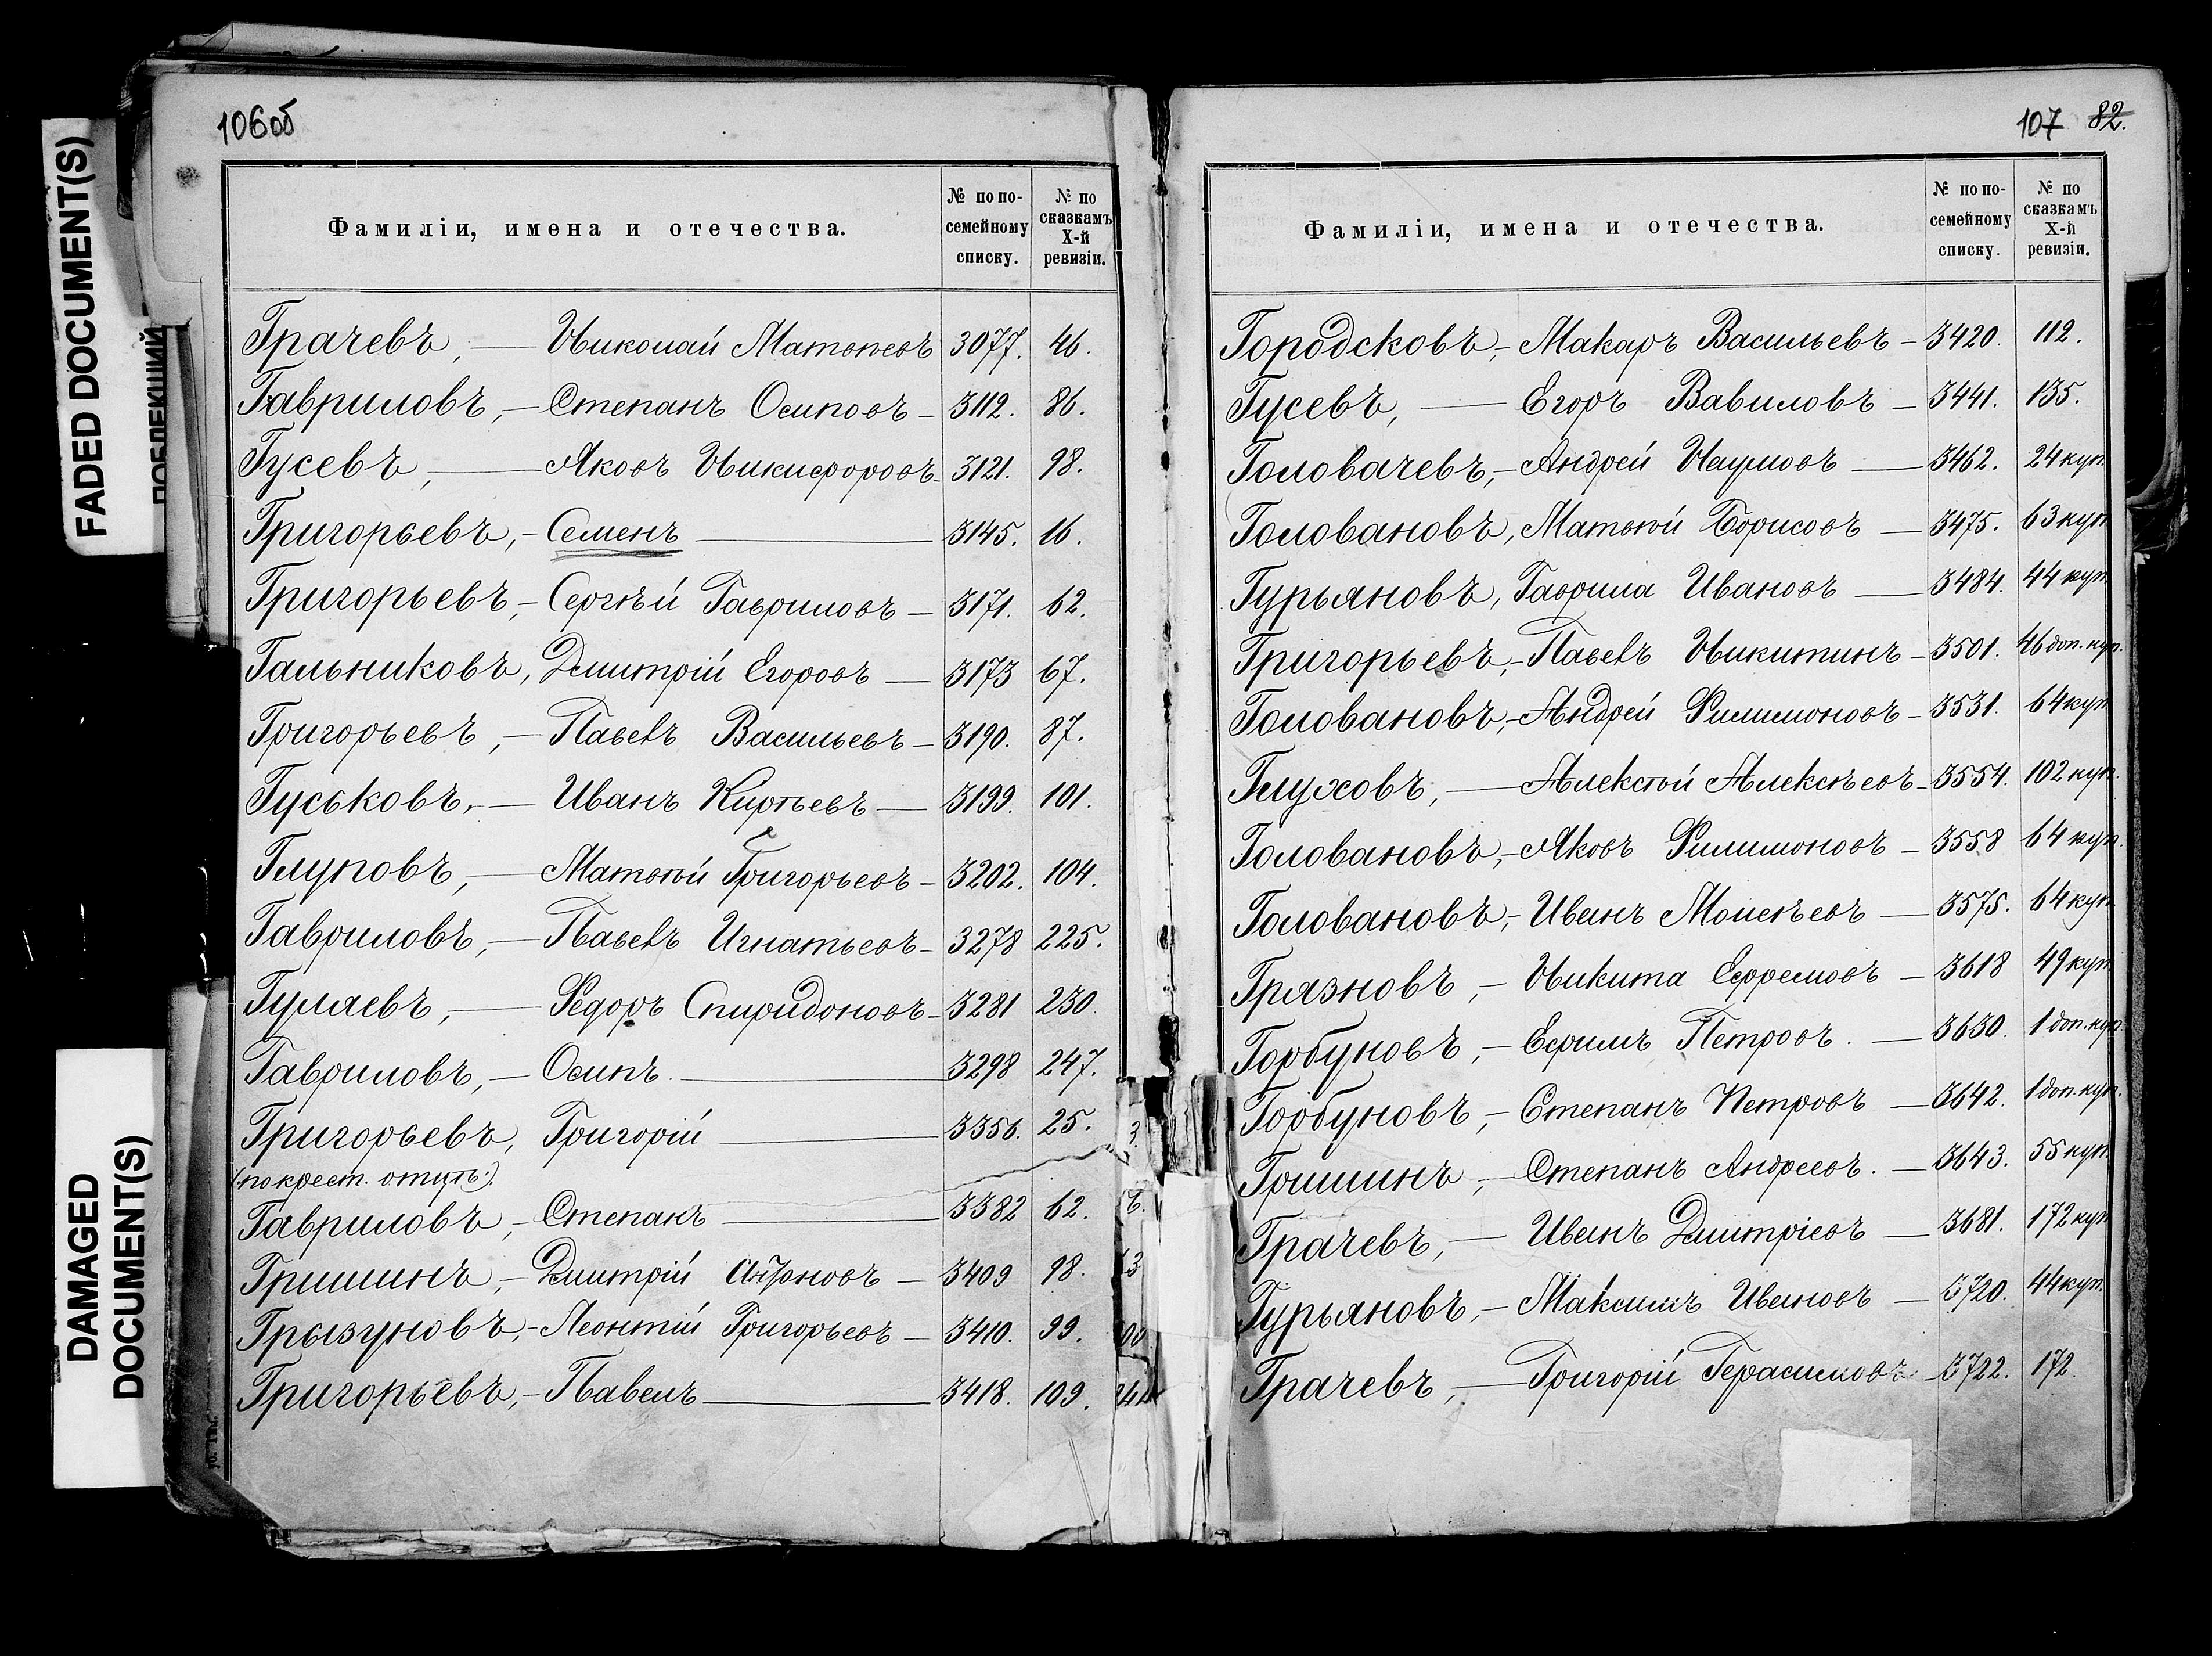 FADED DOCUMENT(S)
DAMAGED
DOCUMENT(S)
106об
Фамиліи, имена и отечества.
№ по по-
семейному
списку.
№ по
сказкамъ
X-й
ревизіи.
Грачевъ, — Николай Матвѣевъ 3077. 46.
Гавриловъ, — Степанъ Осиповъ — 3112. 86.
Гусевъ, — Яковъ Никифоровъ — 3121. 98.
Григорьевъ, — Семенъ — 3145. 16.
Григорьевъ, — Сергѣй Гавриловъ — 3171. 62.
Гальниковъ, Дмитрій Егоровъ — 3173 67.
Григорьевъ, — Павелъ Васильевъ — 3190. 87.
Гуськовъ, — Иванъ Кирѣевъ — 3199. 101.
Глуповъ, — Матвѣй Григорьевъ — 3202. 104.
Гавриловъ, — Павелъ Игнатьевъ — 3278 225.
Гуляевъ, — Ѳедоръ Спиридоновъ — 3281 230.
Гавриловъ, — Осипъ. — 3298 247.
Григорьевъ, Григорій — 3356. 25.
(по крест. отпуск.).
Гавриловъ, — Степанъ — 3382 62.
Гришинъ, — Дмитрій — 3409 98.
Грызуновъ, — Леонтій Григорьевъ — 3410. 99.
Григорьевъ, — Павелъ — 3418. 109.
107 82.
Фамиліи, имена и отечества.
№ по по-
семейному
списку.
№ по
сказкамъ
X-й
ревизіи.
Городсковъ, — Макаръ Васильевъ — 3420. 112.
Гусевъ, — Егоръ Вавиловъ — 3441. 135.
Головачевъ, — Андрей Наумовъ — 3462. 24 куп.
Головановъ, Матвѣй Борисовъ — 3475. 63 куп.
Гурьяновъ, Гаврила Ивановъ — 3484. 44 куп.
Григорьевъ, — Павелъ Никитинъ — 3501. 46 доп. куп.
Головановъ, — Андрей Филимоновъ — 3531. 64 куп.
Глуховъ, — Алексѣй Алексѣевъ — 3554. 102 куп.
Головановъ, — Яковъ Филимоновъ — 3558 64 куп.
Головановъ, — Иванъ Моисѣевъ — 3575. 64 куп.
Грязновъ, — Никита Ефремовъ — 3618 49 куп.
Горбуновъ, — Ефимъ Петровъ. — 3630. 1 доп. куп.
Горбуновъ, — Степанъ Петровъ — 3642. 1 доп. куп.
Гришинъ, — Степанъ Андреевъ. — 3643. 55 куп.
Грачевъ, — Иванъ Дмитріевъ — 3681. 172 куп.
Гурьяновъ, — Максимъ Ивановъ — 3720. 44 куп.
Грачевъ, — Григорій Герасимовъ — 3722. 172.